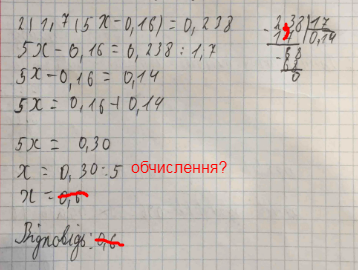 2) 1,7(5x-0,16)=0,238
5x-0,16=0,238:1,7
5x-0,16=0,14
5x=0,16+0,14
5x=0,30
x=0,30:5 обчислення?
x=0,6
Відповідь: 0,6
2,38 | 17
17 0,14
68
68
0